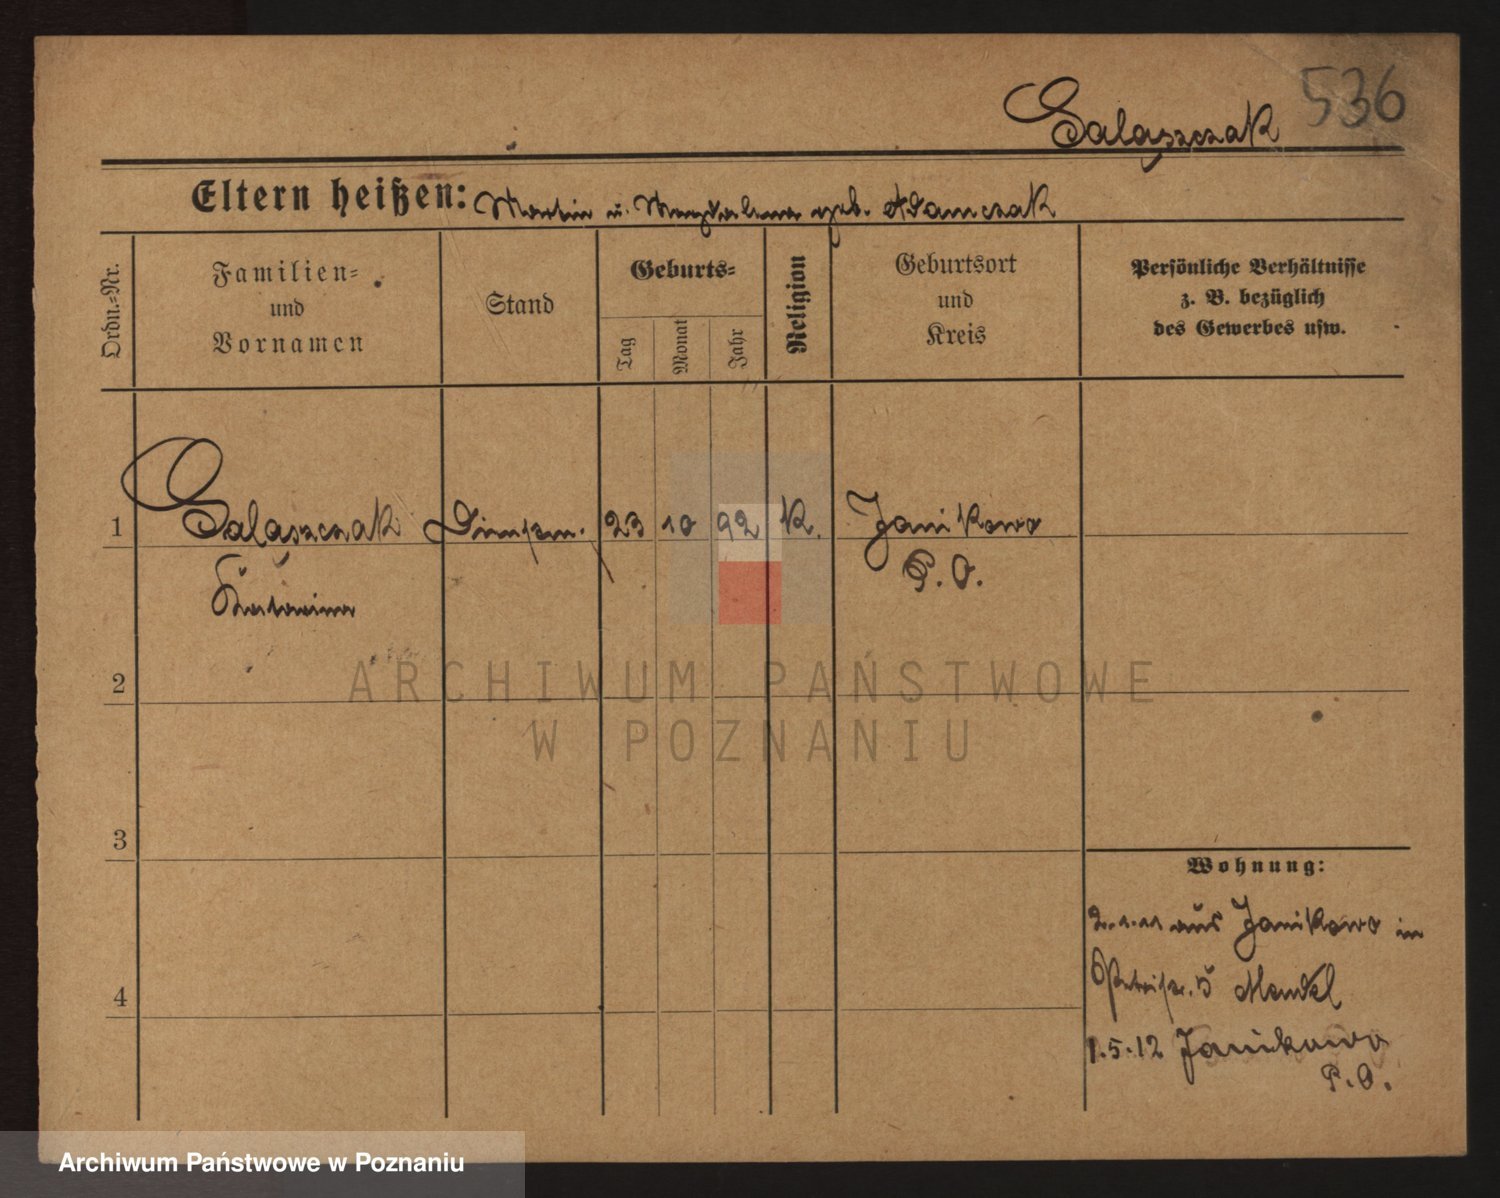 536
Galaszczak
Eltern heißen: Martin u. Magdalena geb. Adamczak
Ordn.-Nr.
Familien-
und
Vornamen
Stand
Geburts-
Tag
Monat
Jahr
Religion
Geburtsort
und
Kreis
Persönliche Verhältnisse
z. B. bezüglich
des Gewerbes usw.
1 Galaszczak 23 10 92 K. Janikowo
P. O.
Katarina
2
3
4
Wohnung:
2.1.11 aus Janikowo in
5 Mendel
1.5.12 Janikowo
P. O.
ARCHIWUM PAŃSTWOWE
W POZNANIU
Archiwum Państwowe w Poznaniu